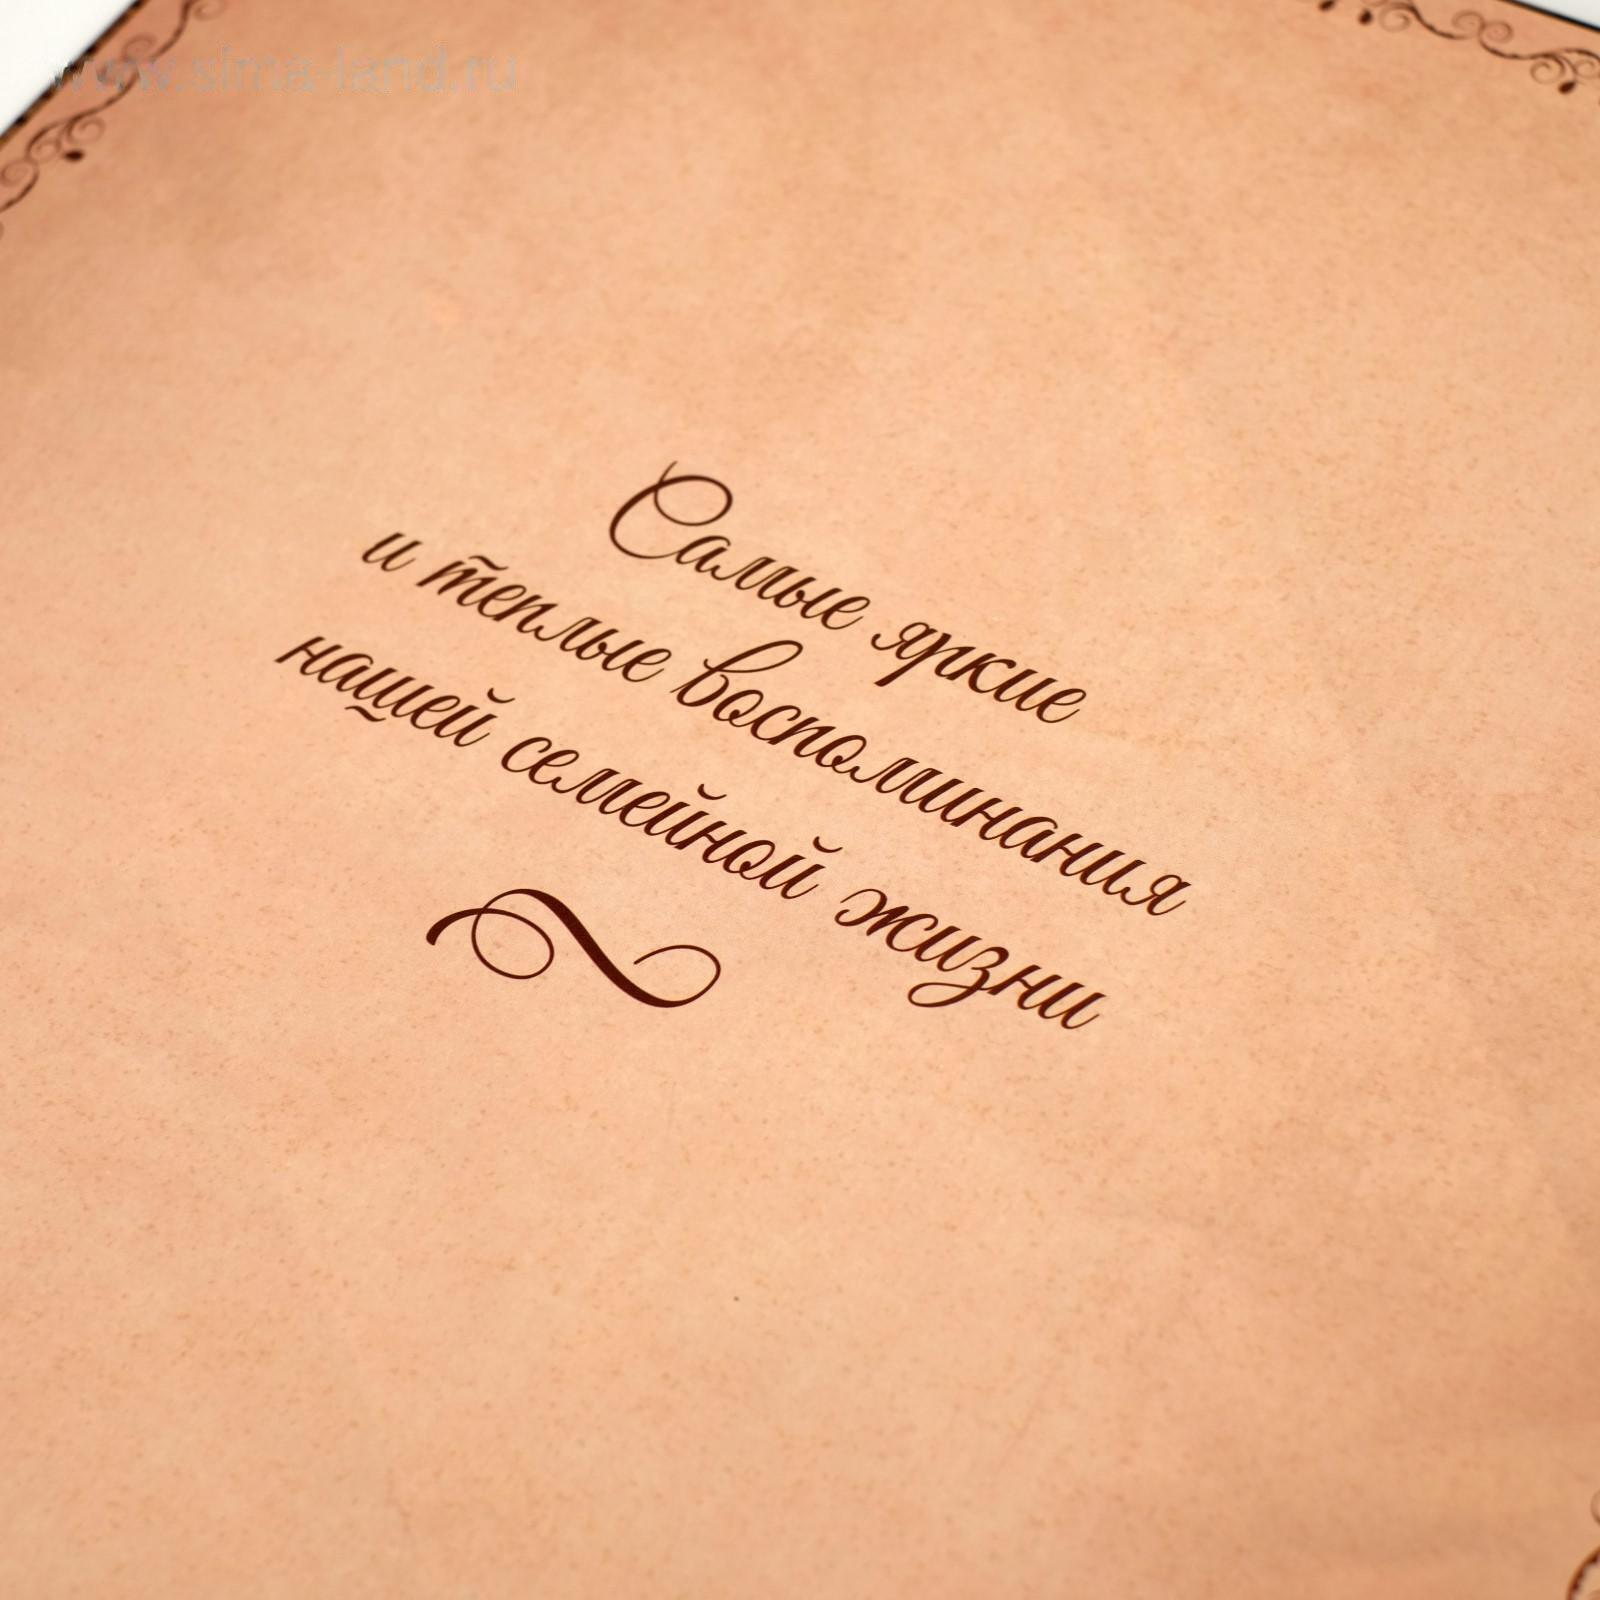 www.sima-land.ru
Самые яркие
и теплые воспоминания
нашей семейной жизни